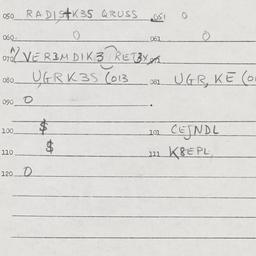 050 RADIS+K35 GRUSS 051 0
060 0 061 0
070 VER3MDIK3 RET3X 071
080 UGRK3S (013 081 UGR, KE (01
090 0
100 $ 101 CEJNDL
110 $ 111 K8EPL
120 0